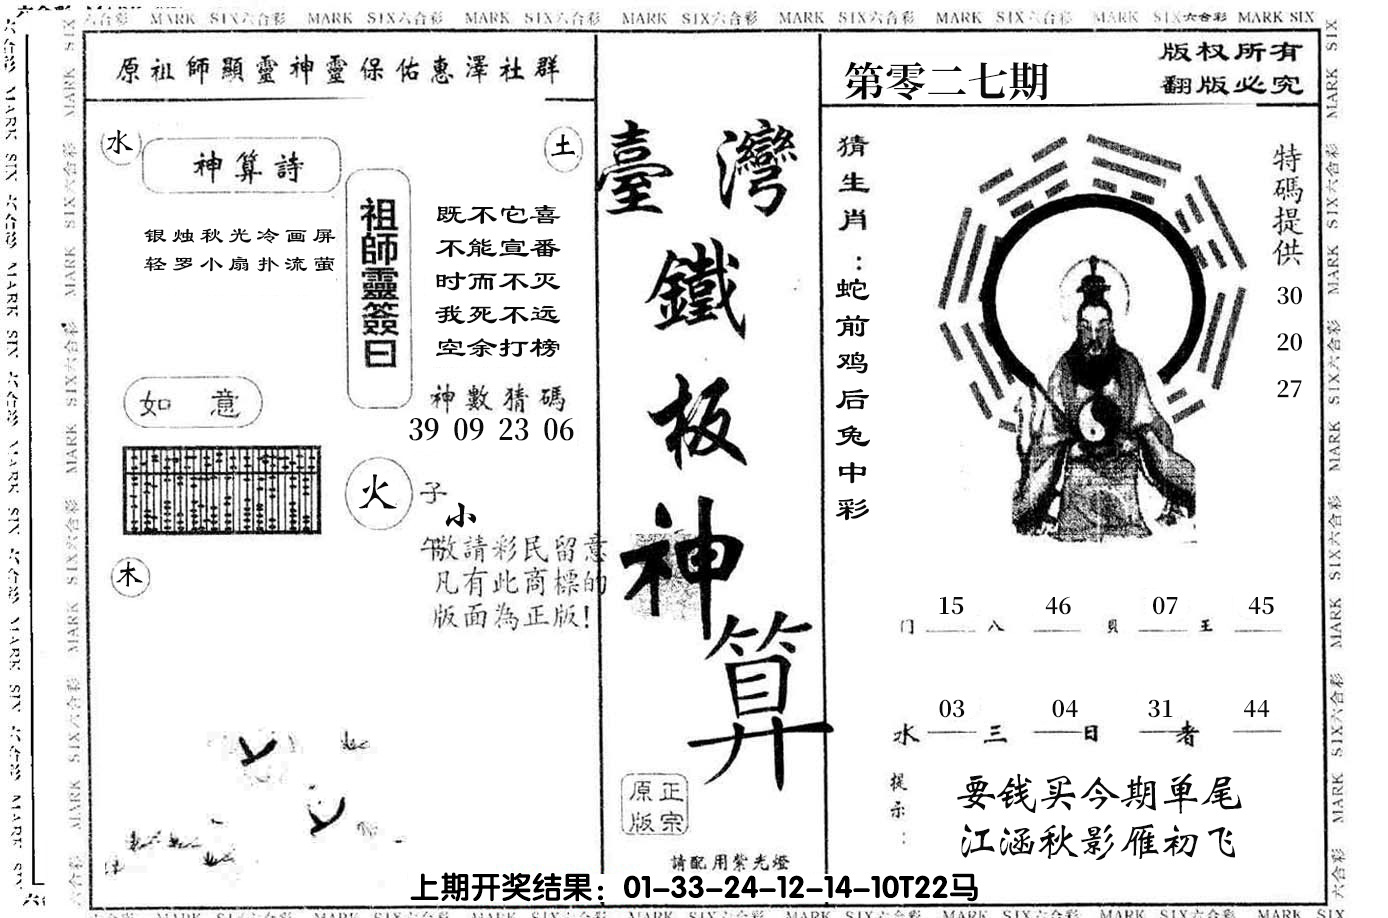 MARK SIX六合彩 MARK SIX六合彩 MARK SIX六合彩 MARK SIX六合彩 MARK SIX六合彩 MARK SIX六合彩 MARK SIX六合彩 MARK SIX
原祖師顯靈神靈保佑惠澤社群
水
神算詩
土
银烛秋光冷画屏
轻罗小扇扑流萤
祖師靈簽曰
既不它喜
不能宣番
时而不灭
我死不远
空余打榜
神數猜碼
39 09 23 06
如意
火
子
小
午
敬請彩民留意
凡有此商標的
版面為正版!
木
臺灣
鐵
板
神
算
正宗
原版
請配用紫光燈
第零二七期
版权所有
翻版必究
猜生肖：蛇前鸡后兔中彩
特碼提供
30
20
27
门 15 八 46 貝 07 王 45
水 03 三 04 日 31 者 44
提示：
要钱买今期单尾
江涵秋影雁初飞
上期开奖结果：01-33-24-12-14-10T22马